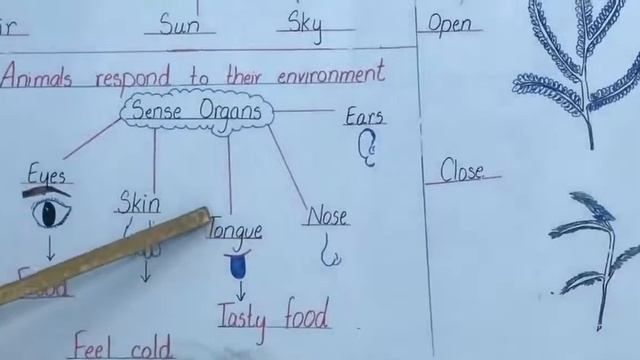 Sun
Sky
Open
Animals respond to their environment
Sense Organs
Ears
Eyes
Close
Skin
Nose
Tongue
Tasty food
Feel cold